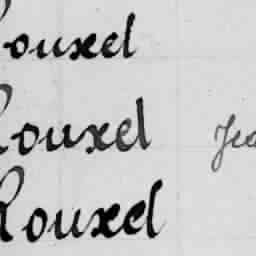 Rouxel
Rouxel Jea
Rouxel